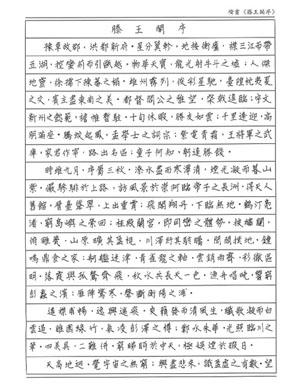 《滕王閣序》
滕王閣序
豫章故郡，洪都新府。星分翼軫，地接衡廬。襟三江而帶
五湖，控蠻荆而引甌越。物華天寶，龍光射牛斗之墟；人傑
地靈，徐孺下陳蕃之榻。雄州霧列，俊彩星馳。臺隍枕夷夏
之交，賓主盡東南之美。都督閻公之雅望，棨戟遥臨；宇文
新州之懿範，襜帷暫駐。十旬休暇，勝友如雲；千里逢迎，高
朋滿座。騰蛟起鳳，孟學士之詞宗；紫電青霜，王將軍之武
庫。家君作宰，路出名區；童子何知，躬逢勝餞。
時維九月，序屬三秋。潦水盡而寒潭清，煙光凝而暮山
紫。儼驂騑於上路，訪風景於崇阿。臨帝子之長洲，得天人
舊館。層臺聳翠，上出重霄；飛閣翔丹，下臨無地。鶴汀鳧
渚，窮島嶼之縈回；桂殿蘭宮，即岡巒之體勢。披繡闥，
俯雕甍，山原曠其盈視，川澤紆其駭矚。閭閻撲地，鐘
鳴鼎食之家；舸艦迷津，青雀龍之舳。雲銷雨霽，彩徹區
明。落霞與孤鶩齊飛，秋水共長天一色。漁舟唱晚，響窮
彭蠡之濱；雁陣驚寒，聲斷衡陽之浦。
遥襟甫暢，逸興遄飛。爽籟發而清風生，纖歌凝而白
雲遏。睢園綠竹，氣凌彭澤之樽；鄴水朱華，光照臨川之
筆。四美具，二難併。窮睇眄於中天，極娛遊於暇日。
天高地迥，覺宇宙之無窮；興盡悲來，識盈虛之有數。望